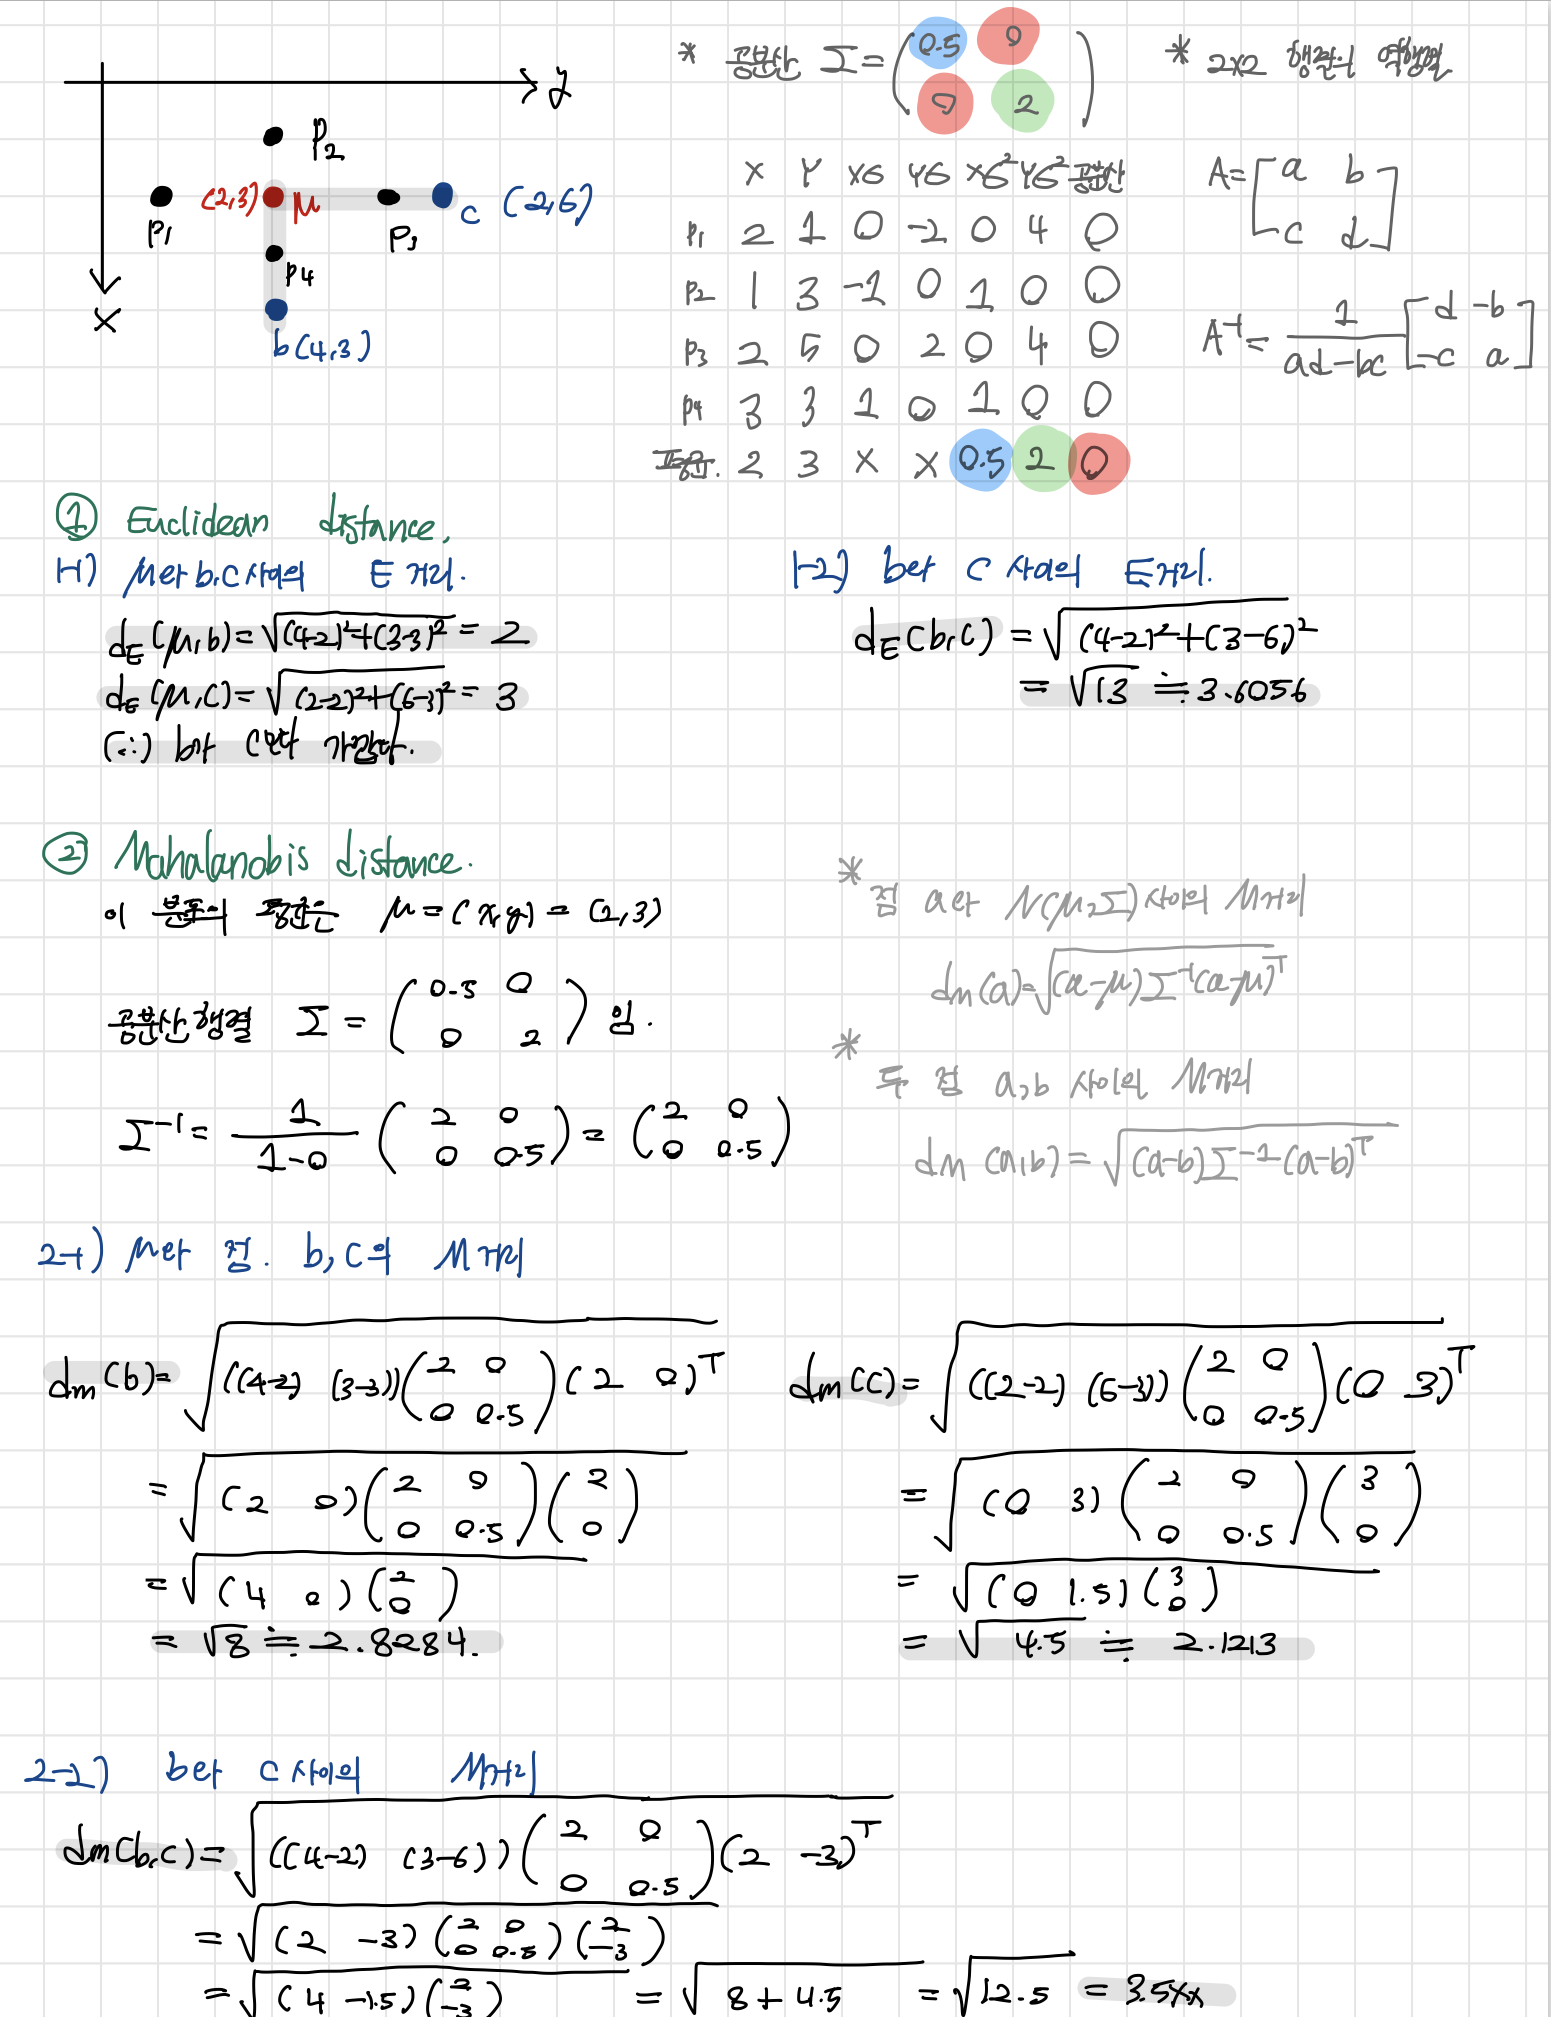 y
x
P₂
P₁
(2,3) μ
P₃
c (2,6)
P4
b(4,3)
* 공분산 Σ = ( 0.5 0
0 2 )
X Y XG YG XG² YG² 공분산
P₁ 2 1 0 -2 0 4 0
P₂ 1 3 -1 0 1 0 0
P₃ 2 5 0 2 0 4 0
P4 3 3 1 0 1 0 0
평균. 2 3 X X 0.5 2 0
* 2x2 행렬의 역행렬
A = [ a b
c d ]
A⁻¹ = 1/(ad-bc) [ d -b
-c a ]
① Euclidean distance.
1-1) μ와 b,c 사이의 E 거리.
d_E (μ,b) = √((4-2)²+(3-3)²) = 2
d_E (μ,c) = √((2-2)²+(6-3)²) = 3
(∴) b가 c보다 가깝다.
1-2) b와 c 사이의 E거리.
d_E (b,c) = √((4-2)²+(3-6)²)
= √13 ≒ 3.6056
② Mahalanobis distance.
이 분포의 평균은 μ = (x,y) = (2,3)
공분산 행렬 Σ = ( 0.5 0
0 2 ) 임.
Σ⁻¹ = 1/(1-0) ( 2 0
0 0.5 ) = ( 2 0
0 0.5 )
* 점 a와 N(μ,Σ) 사이의 M거리
dm(a) = √((a-μ)Σ⁻¹(a-μ)ᵀ)
* 두 점 a,b 사이의 M거리
dm (a,b) = √((a-b)Σ⁻¹(a-b)ᵀ)
2-1) μ와 점. b,c의 M거리
dm (b) = √(((4-2) (3-3)) ( 2 0
0 0.5 ) (2 0)ᵀ)
= √((2 0) ( 2 0
0 0.5 ) ( 2
0 ))
= √((4 0) ( 2
0 ))
= √8 ≒ 2.8284.
dm (c) = √(((2-2) (6-3)) ( 2 0
0 0.5 ) (0 3)ᵀ)
= √((0 3) ( 2 0
0 0.5 ) ( 3
0 ))
= √((0 1.5) ( 3
0 ))
= √4.5 ≒ 2.1213
2-2) b와 c 사이의 M거리
dm(b,c) = √(((4-2) (3-6)) ( 2 0
0 0.5 ) (2 -3)ᵀ)
= √((2 -3) ( 2 0
0 0.5 ) ( 2
-3 ))
= √((4 -1.5) ( 2
-3 )) = √(8+4.5) = √12.5 = 3.5xx